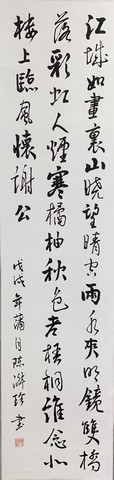 江城如畫裏山曉望晴空雨水夾明鏡雙橋
落彩虹人煙寒橘柚秋色老梧桐誰念北
樓上臨風懷謝公
戊戌年蒲月陳珍書